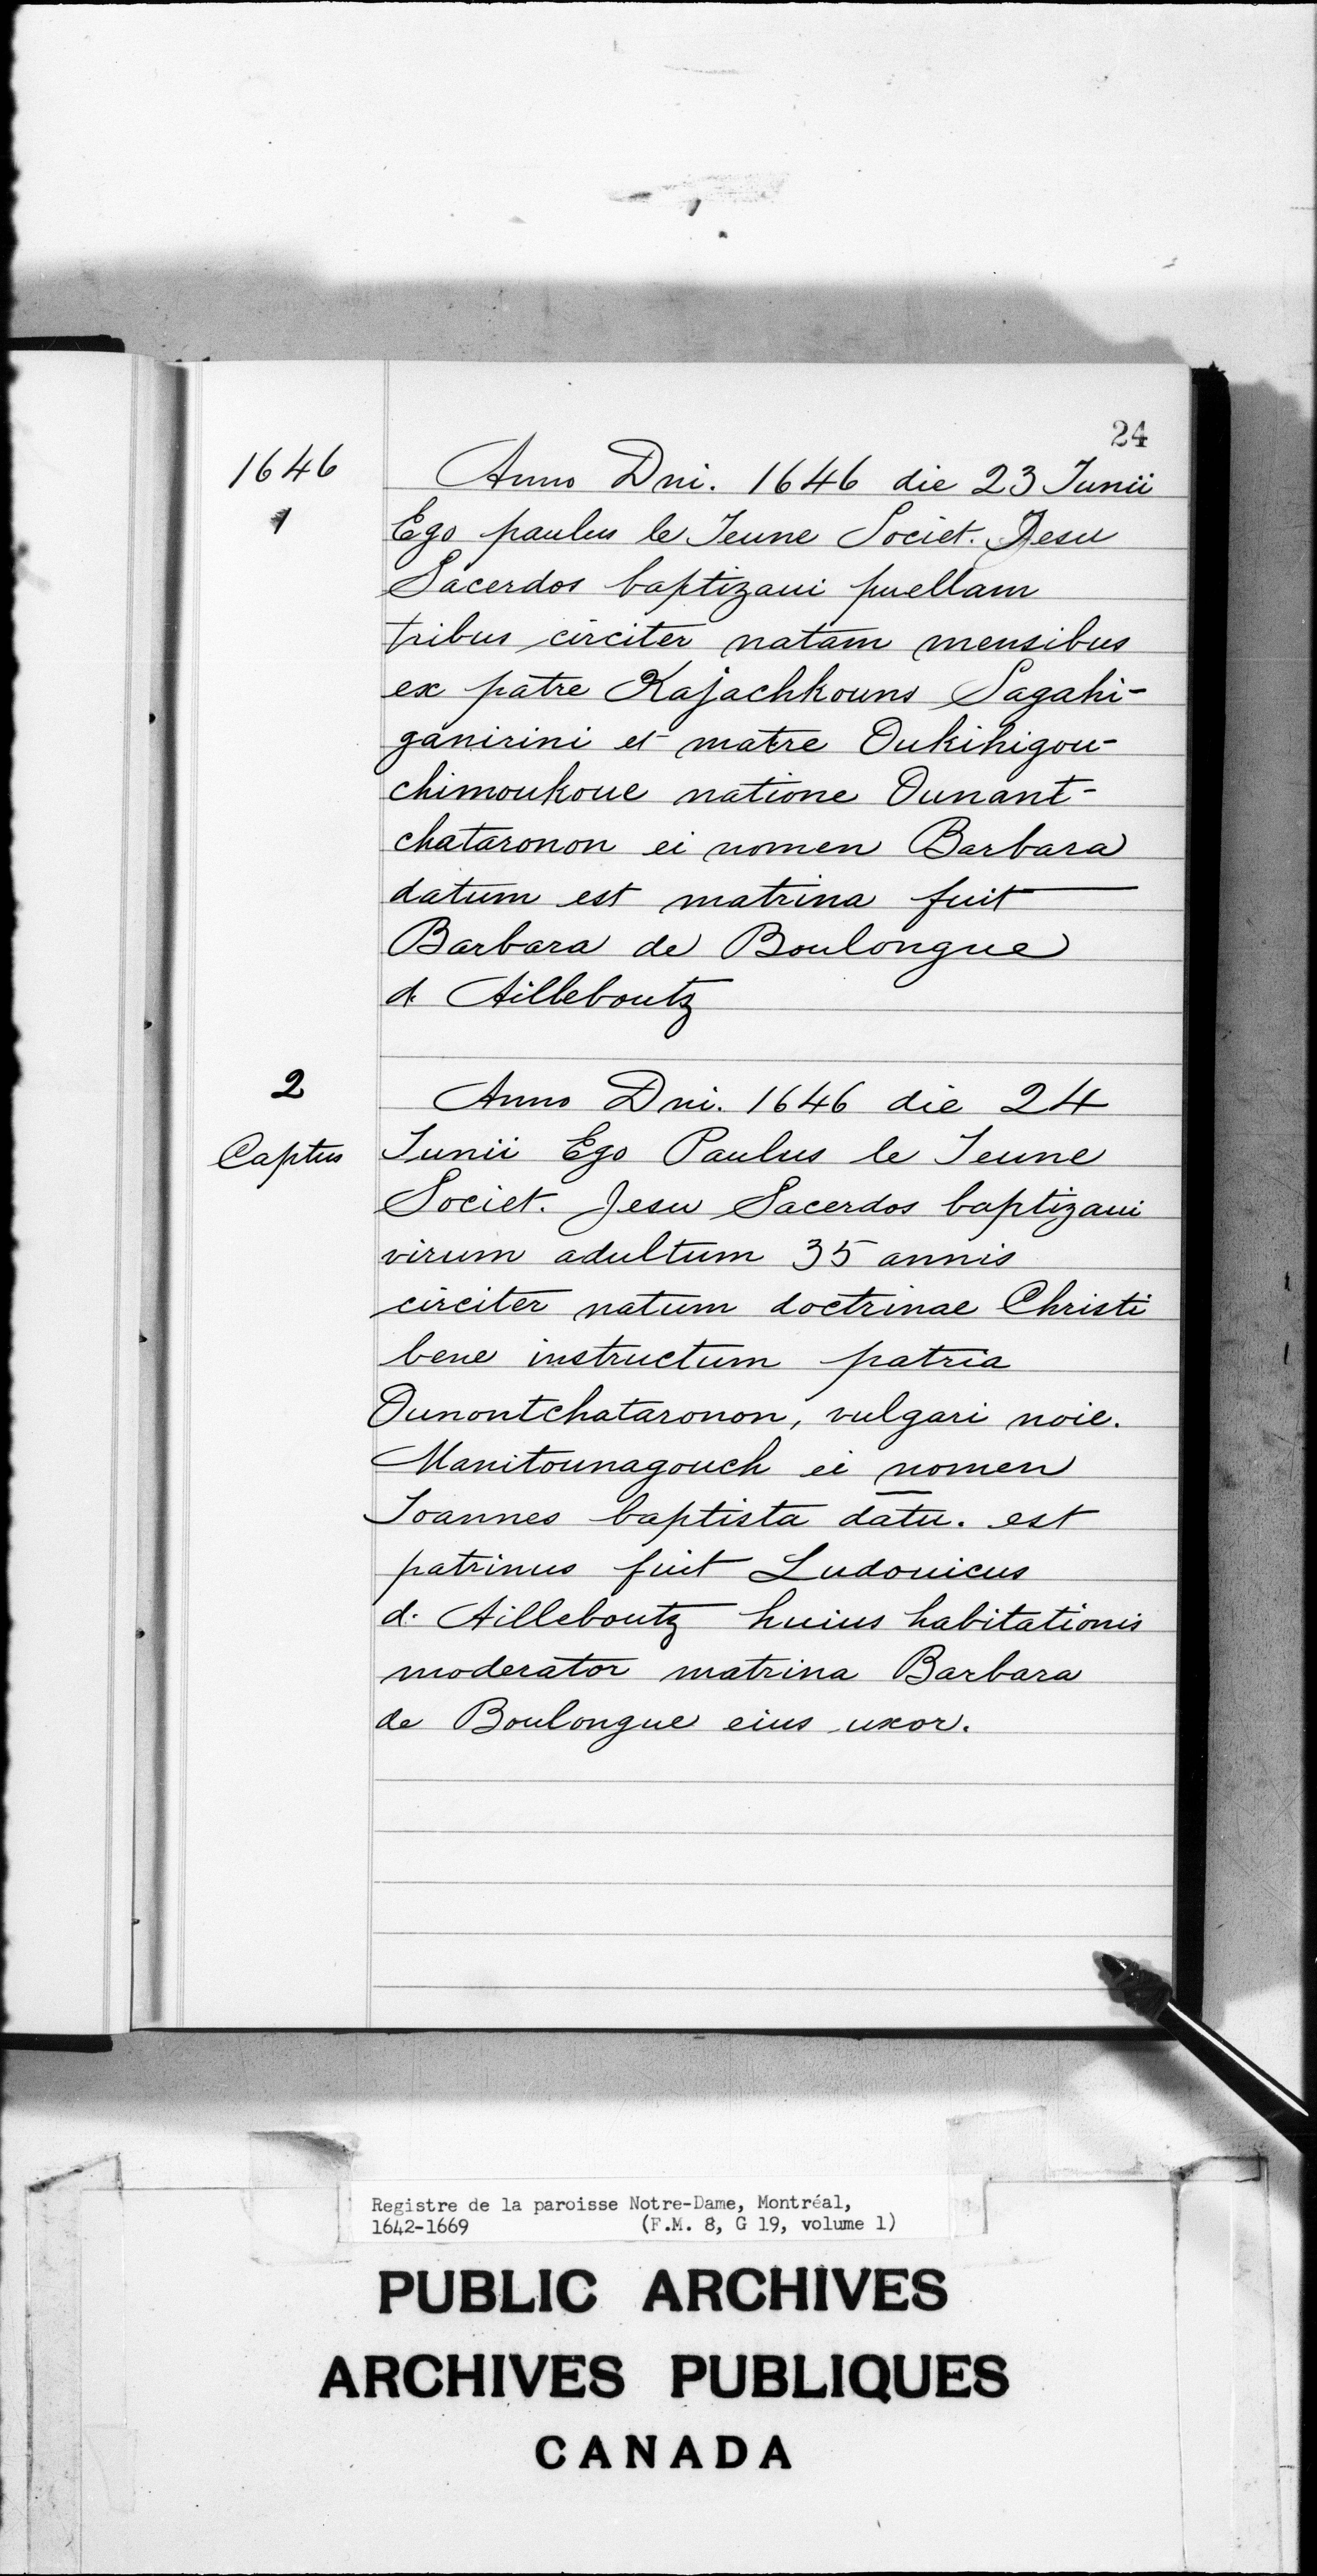 24
1646
Anno Dni. 1646 die 23 Junii
1
Ego paulus le Jeune Societ. Jesu
Sacerdos baptizaui puellam
tribus circiter natam mensibus
ex patre Kajachkouns Sagahi-
ganirini et matre Oukihigou-
chimoukoue natione Ounant-
chataronon ei nomen Barbara
datum est matrina fuit
Barbara de Boulongue
d. Ailleboutz
2
Anno Dni. 1646 die 24
Captus
Junii Ego Paulus le Jeune
Societ. Jesu Sacerdos baptizaui
virum adultum 35 annis
circiter natum doctrinae Christi
bene instructum patria
Ounontchataronon, vulgari noie.
Manitounagouch ei nomen
Joannes baptista datu. est
patrinus fuit Ludouicus
d. Ailleboutz huius habitationis
moderator matrina Barbara
de Boulongue eius uxor.
Registre de la paroisse Notre-Dame, Montréal,
1642-1669 (F.M. 8, G 19, volume 1)
PUBLIC ARCHIVES
ARCHIVES PUBLIQUES
CANADA